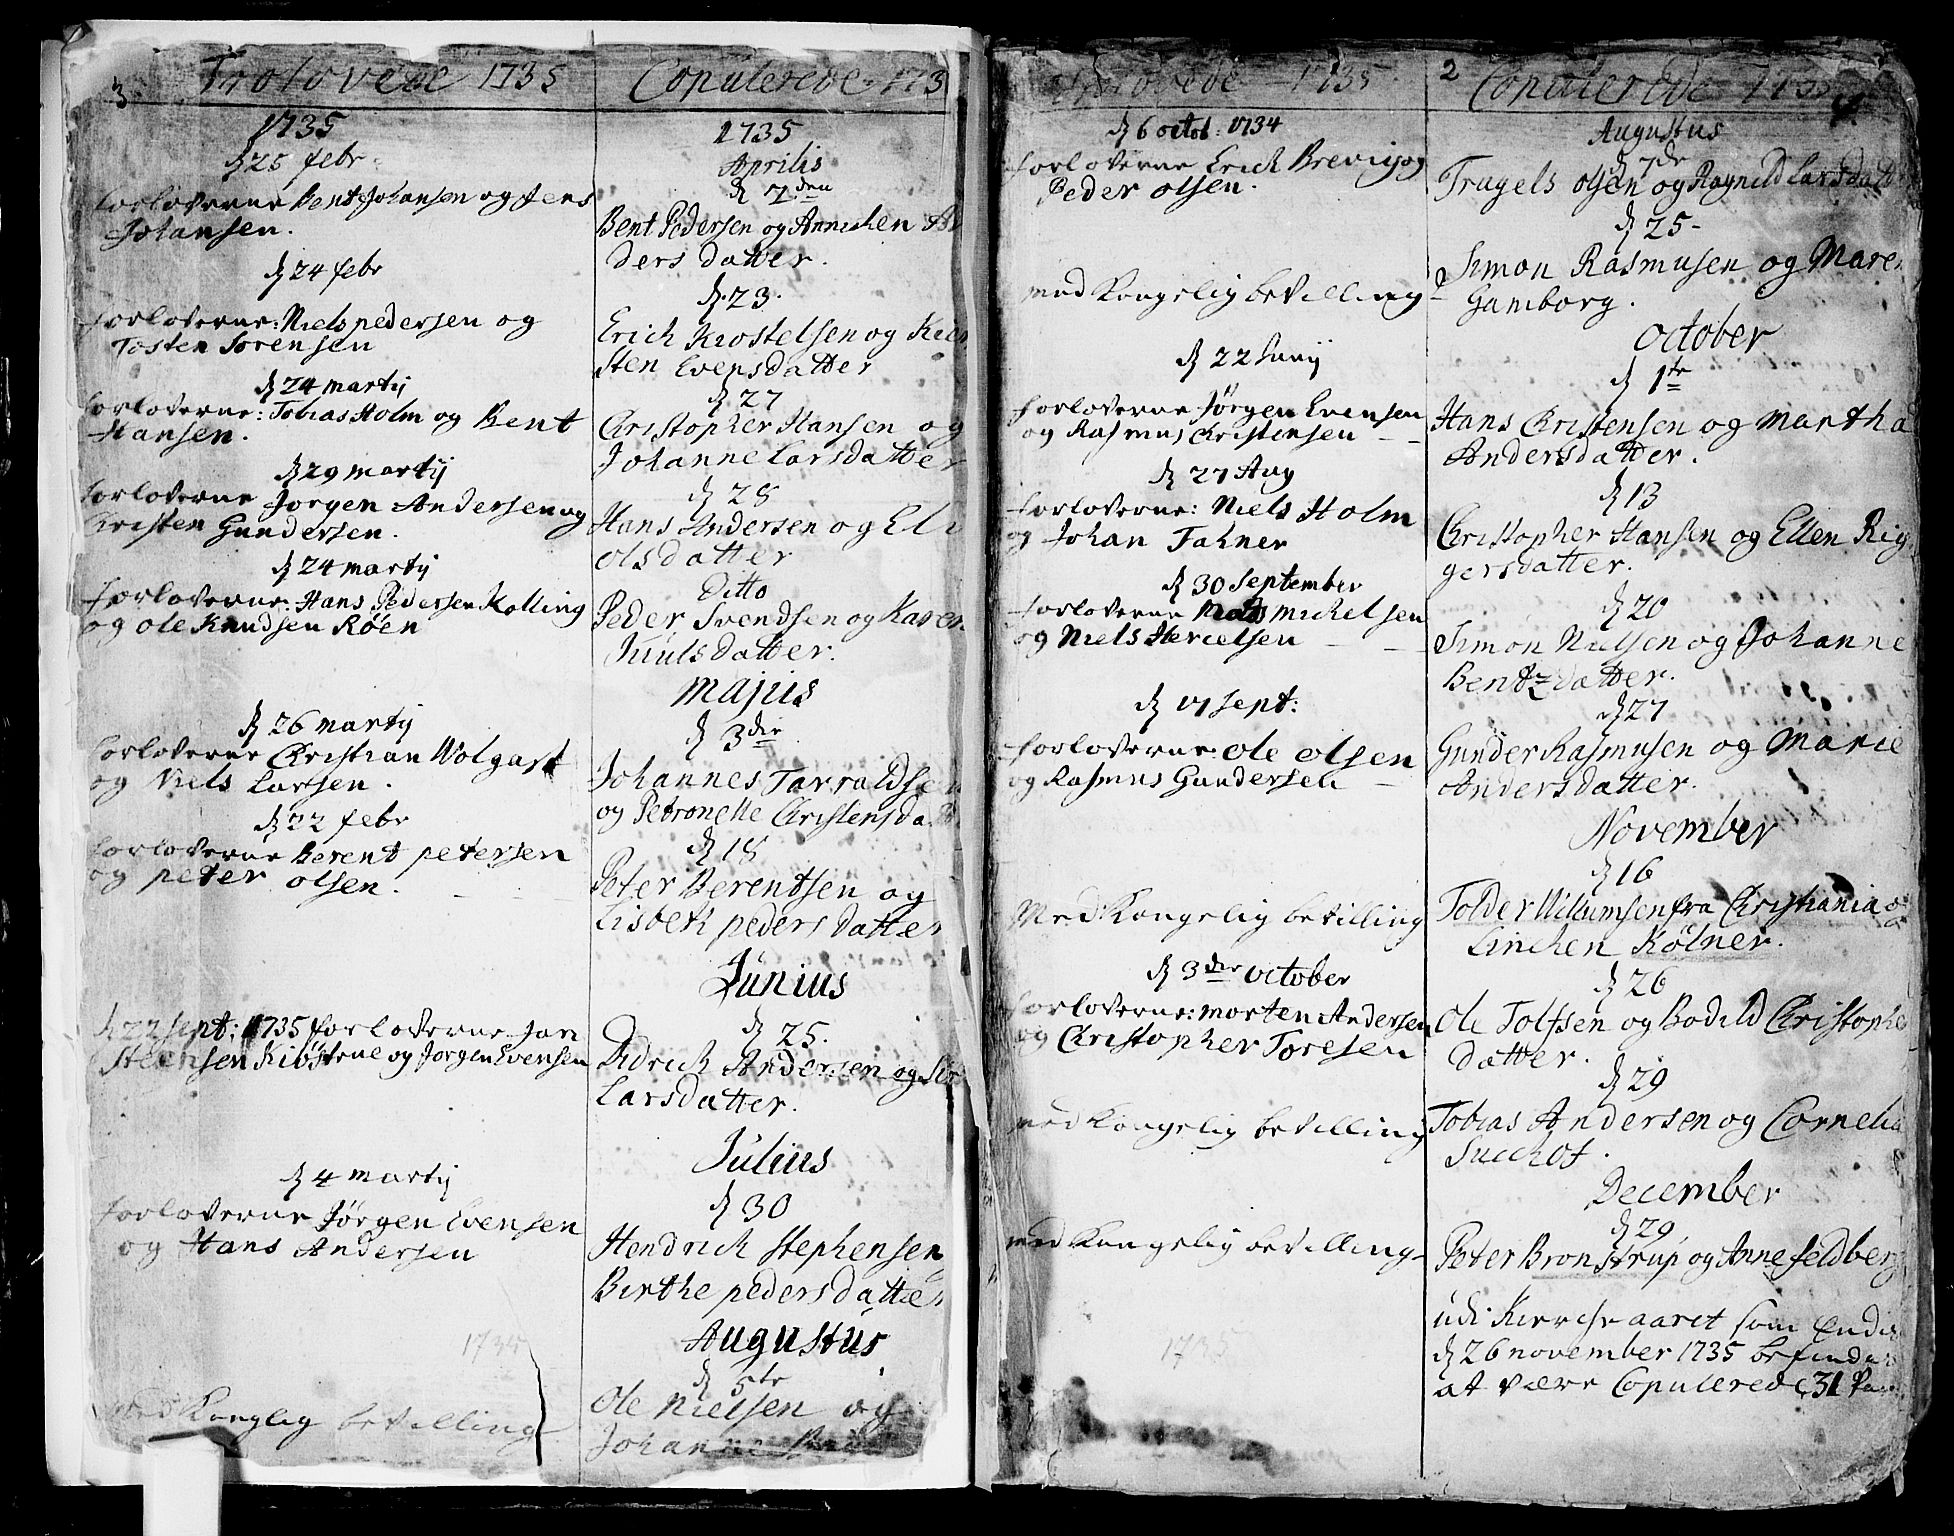 3. Trolovede 1735
1735
D 25 febr.
forloverne Bent Johansen og Jens
Johansen.
D 24 febr
forloverne: Niels pedersen og
Tosten Sörensen
D 24 martij
forloverne: Tobias Holm og Bent
Hansen.
D 29 martij
forloverne Jorgen Andersen og
Kristen Gundersen.
D 24 martij
forloverne: Hans Pedersen Kolling
og Ole Knudsen Röen
D 26 martij
forloverne Christian Wolgast
og Niels Larsen.
D 22 febr
forloverne Berent petersen
og peter olsen.
D 22 sept: 1735 forloverne Jan
Steensen Kiöstrue og Jorgen Evensen
D 4 martij
forloverne Jörgen Evensen
og Hans Andersen
1735
Med Konglig bevilling
Copulerede 173
1735
Aprilis
D 7den
Bent Pedersen og Annichen An
ders datter.
D. 23.
Erich Krostelsen og Kier
sten Evensdatter
D 27
Christopher Hansen og
Johanne Larsdatter
D 28
Hans Andersen og Eli
olsdatter
Ditto
Peder Svendsen og Karen
Juuls datter.
Majus
D 3die
Johannes Tarraldsen
og Petronelle Christensda
D 18
Peter Berentsen og
Lisbeth peders datter
Junius
D 25.
Didrich Andersen og
Larsdatter.
Julius
D 30
Hendrich Stephensen
Birthe pedersdatter
Augustus
D 5te
Ole Nielsen og
Johanne
Trolovede 1735
D 6 octob: 1734
forloverne Erich Brevig og
Peder olsen.
med Kongelig bevilling
D 22 Junij
forloverne Jörgen Evensen
og Rasmus Christensen
D 27 Aug
forloverne: Niels Holm
og Johan Fahner
D 30 September
forloverne Mads Mickelsen
og Niels Hercelsen
D 17 Sept:
forloverne: Ole olsen
og Rasmus Gundersen
Med Kongelig bevilling
D 3die october
forloverne: Morten Andersen
og Christopher Toresen
med Kongelig bevilling
med Kongelig bevilling
1735
2 Copulerede 1735
Augustus
D 7de
Trugels olsen og Ragnild Larsdatt
D 25
Simon Rasmusen og Maren
Gamborg.
October
D 1te
Hans Christensen og Martha
Andersdatter.
D 13
Christopher Hansen og Ellen Rig
gersdatter.
D 20
Simon Nielsen og Johanne
Bentzdatter.
D 27
Gunder Rasmusen og Marie
Andersdatter.
November
D 16
Tolder Willumsen fra Christiania og
Linchen Kölner.
D 26
Ole Tolfsen og Bodild Christophe
datter.
D 29
Tobias Andersen og Cornelia
Suchof.
December
D 29
Peter Bronstrup og Anne Feldberg
udi Kirche aaret som Endis
D 26 november 1735 befindes
at være Copulerede 31 Par